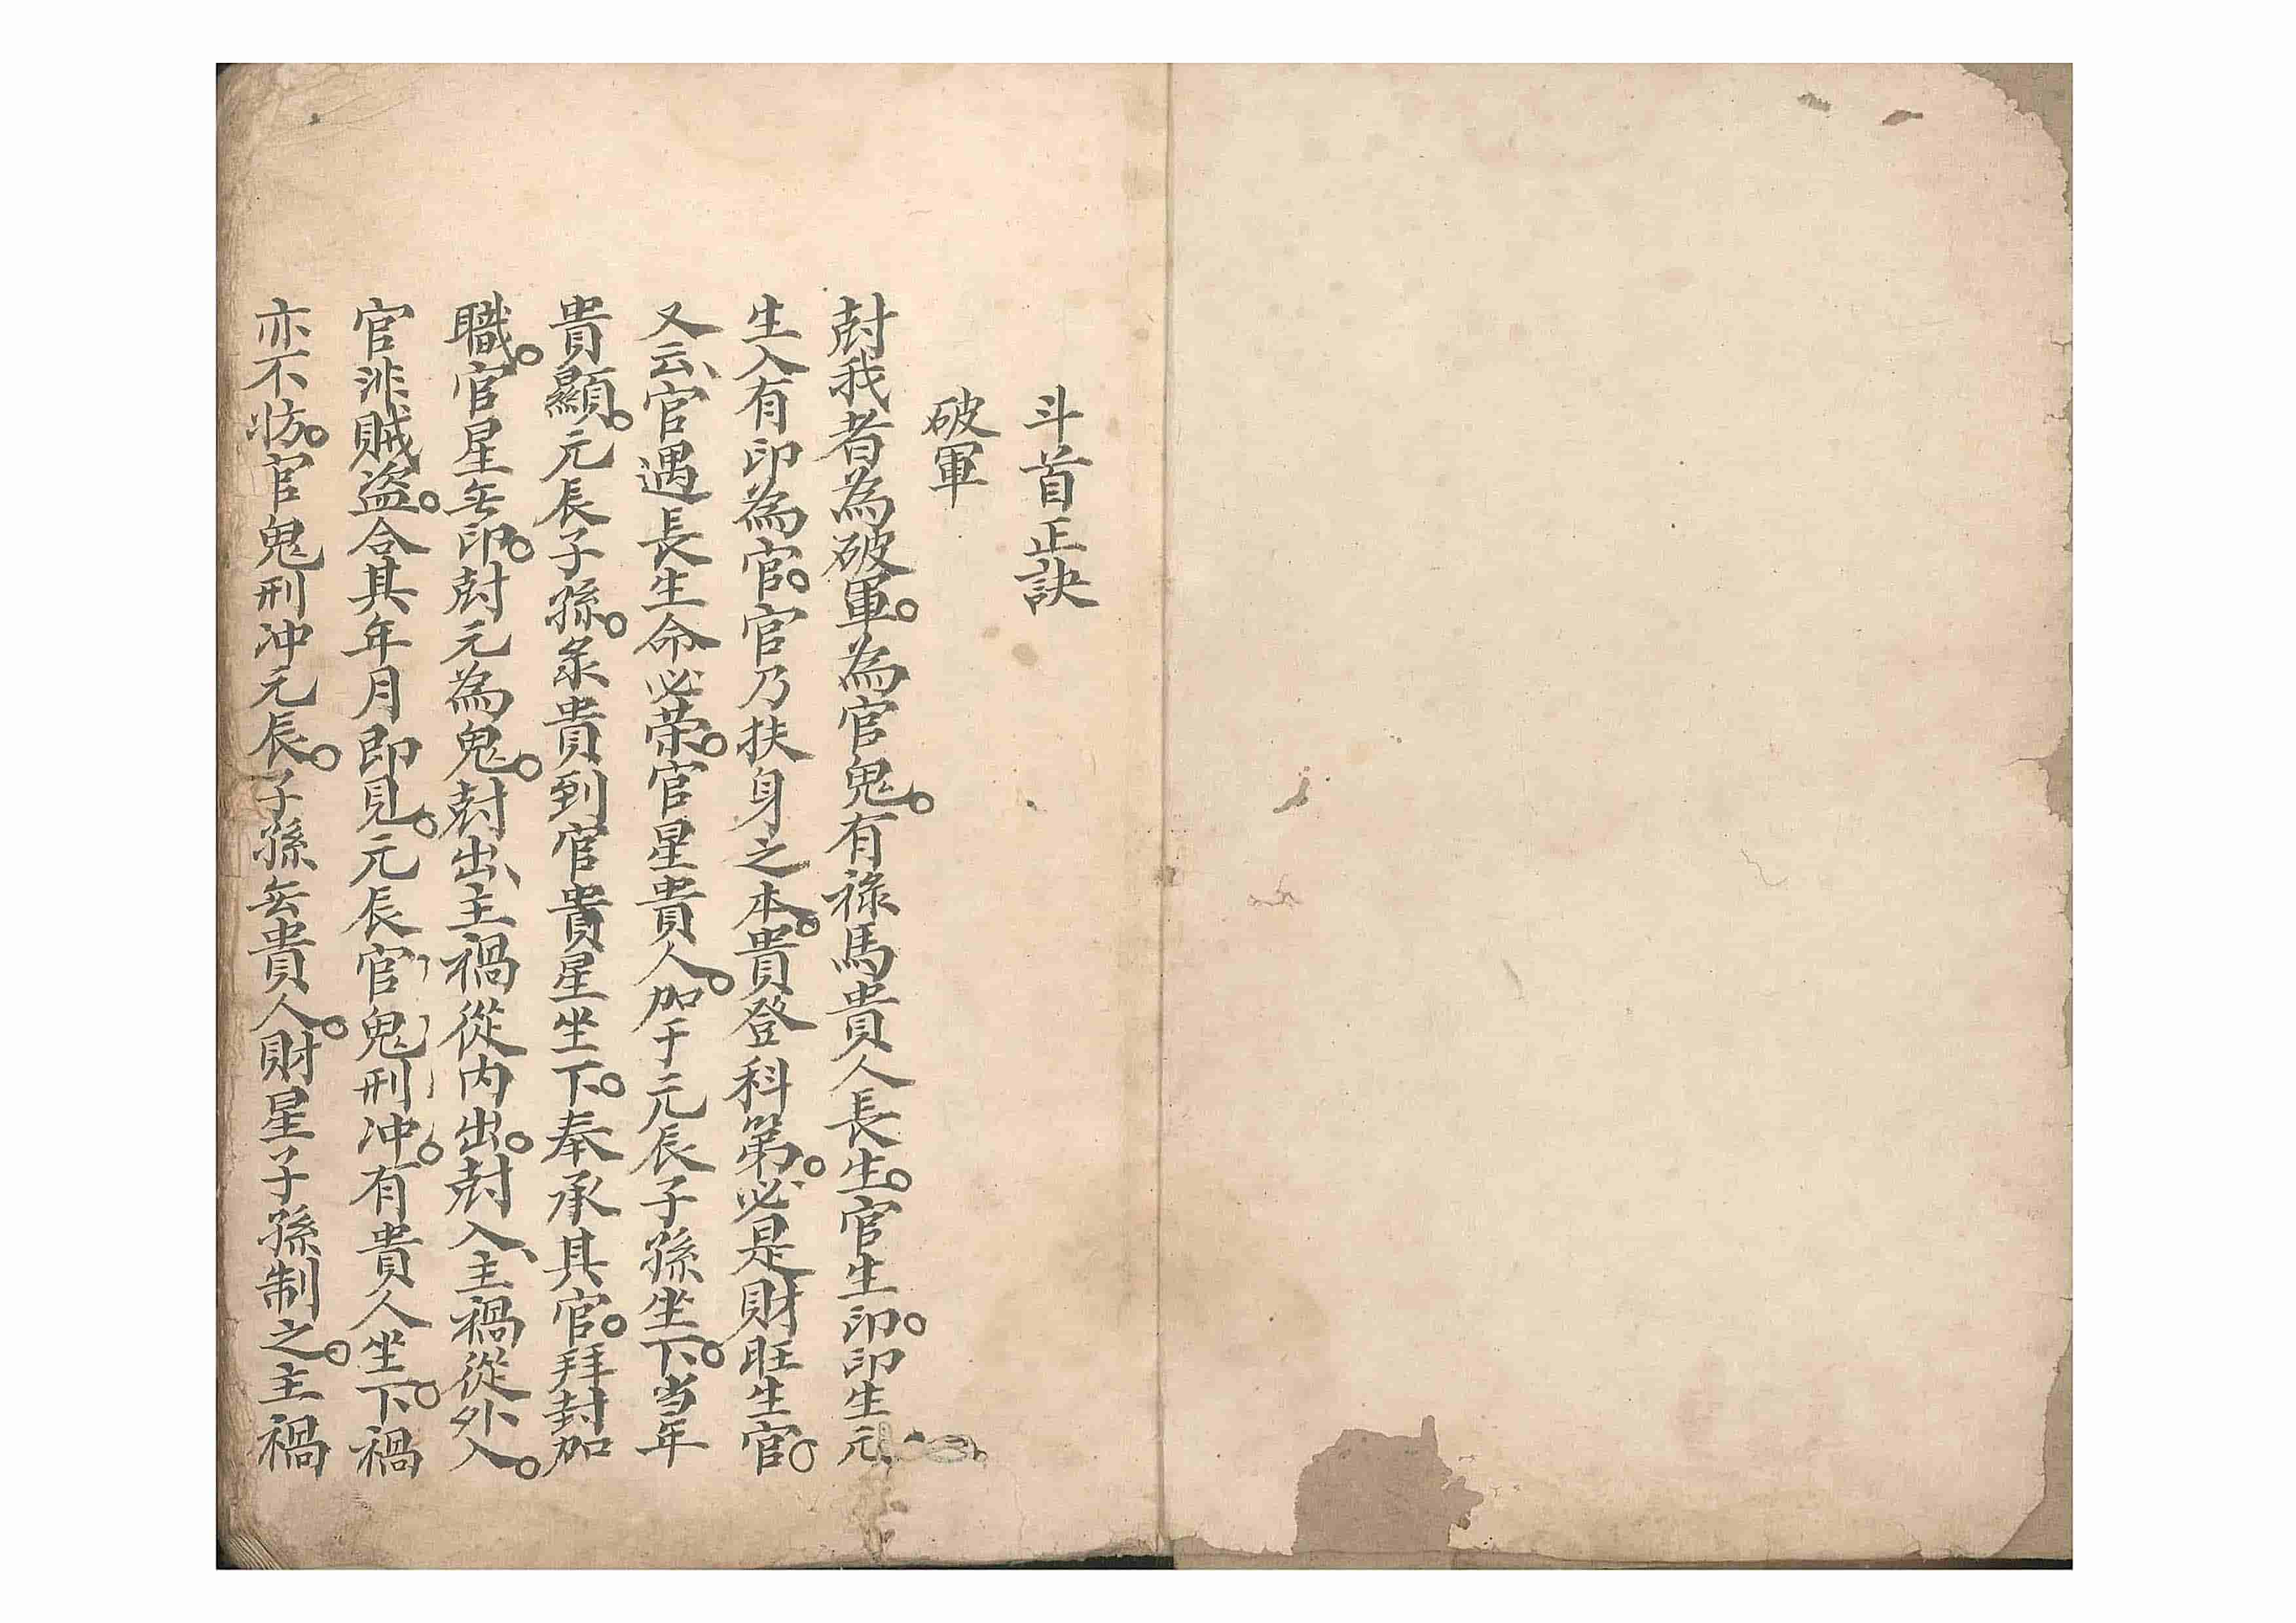 斗首正訣
破軍
尅我者為破軍。為官鬼。有祿馬貴人長生。官生印。印生元
生入有印為官。官乃扶身之本。貴登科第。必是財旺生官。
又云、官遇長生命必荣。官星貴人。加于元辰子孫坐下。当年
貴顯。元辰子孫。系貴到官貴星坐下。奉承其官。拜封加
職。官星无印。尅元為鬼。尅出、主禍從内出。尅入、主禍從外入。
官非賊盗。合其年月即見。元辰官鬼刑冲。有貴人坐下。禍
亦不妨。官鬼刑冲元辰。子孫无貴人。財星子孫制之。主禍